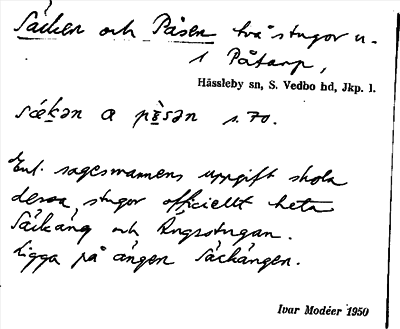 Säcken och Påsen två stugor u.
1 Påtarp,
Hässleby sn, S. Vedbo hd, Jkp. l.
sǽk̲ən a på̀sən s. 70.
Enl. sagesmannens uppgift skola
dessa stugor officiellt heta
Säckäng och Ängsstugan.
Ligga på ängen Säckängen.
Ivar Modéer 1950